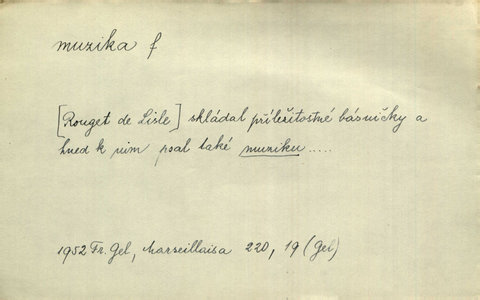 muzika f
[Rouget de Lisle] skládal příležitostné básničky a
hned k nim psal také muziku .....
1952 Fr. Gel, Marseillaisa 220, 19 (Gel)